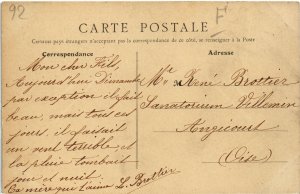 92
F
CARTE POSTALE
Certains pays étrangers n'acceptant pas la correspondance de ce côté, se renseigner à la Poste
Correspondance
Adresse
Mon cher Fils,
Aujourd'hier Dimanche
par exception il fesait
beau, mais tous ces
jours, il faisait
un vent terrible et
la pluie tombait
jour et nuit.
Ta mère que t'aime L. Brottier
Mr René Brottier
Sanatorium Villemin
Angicourt
(Oise)